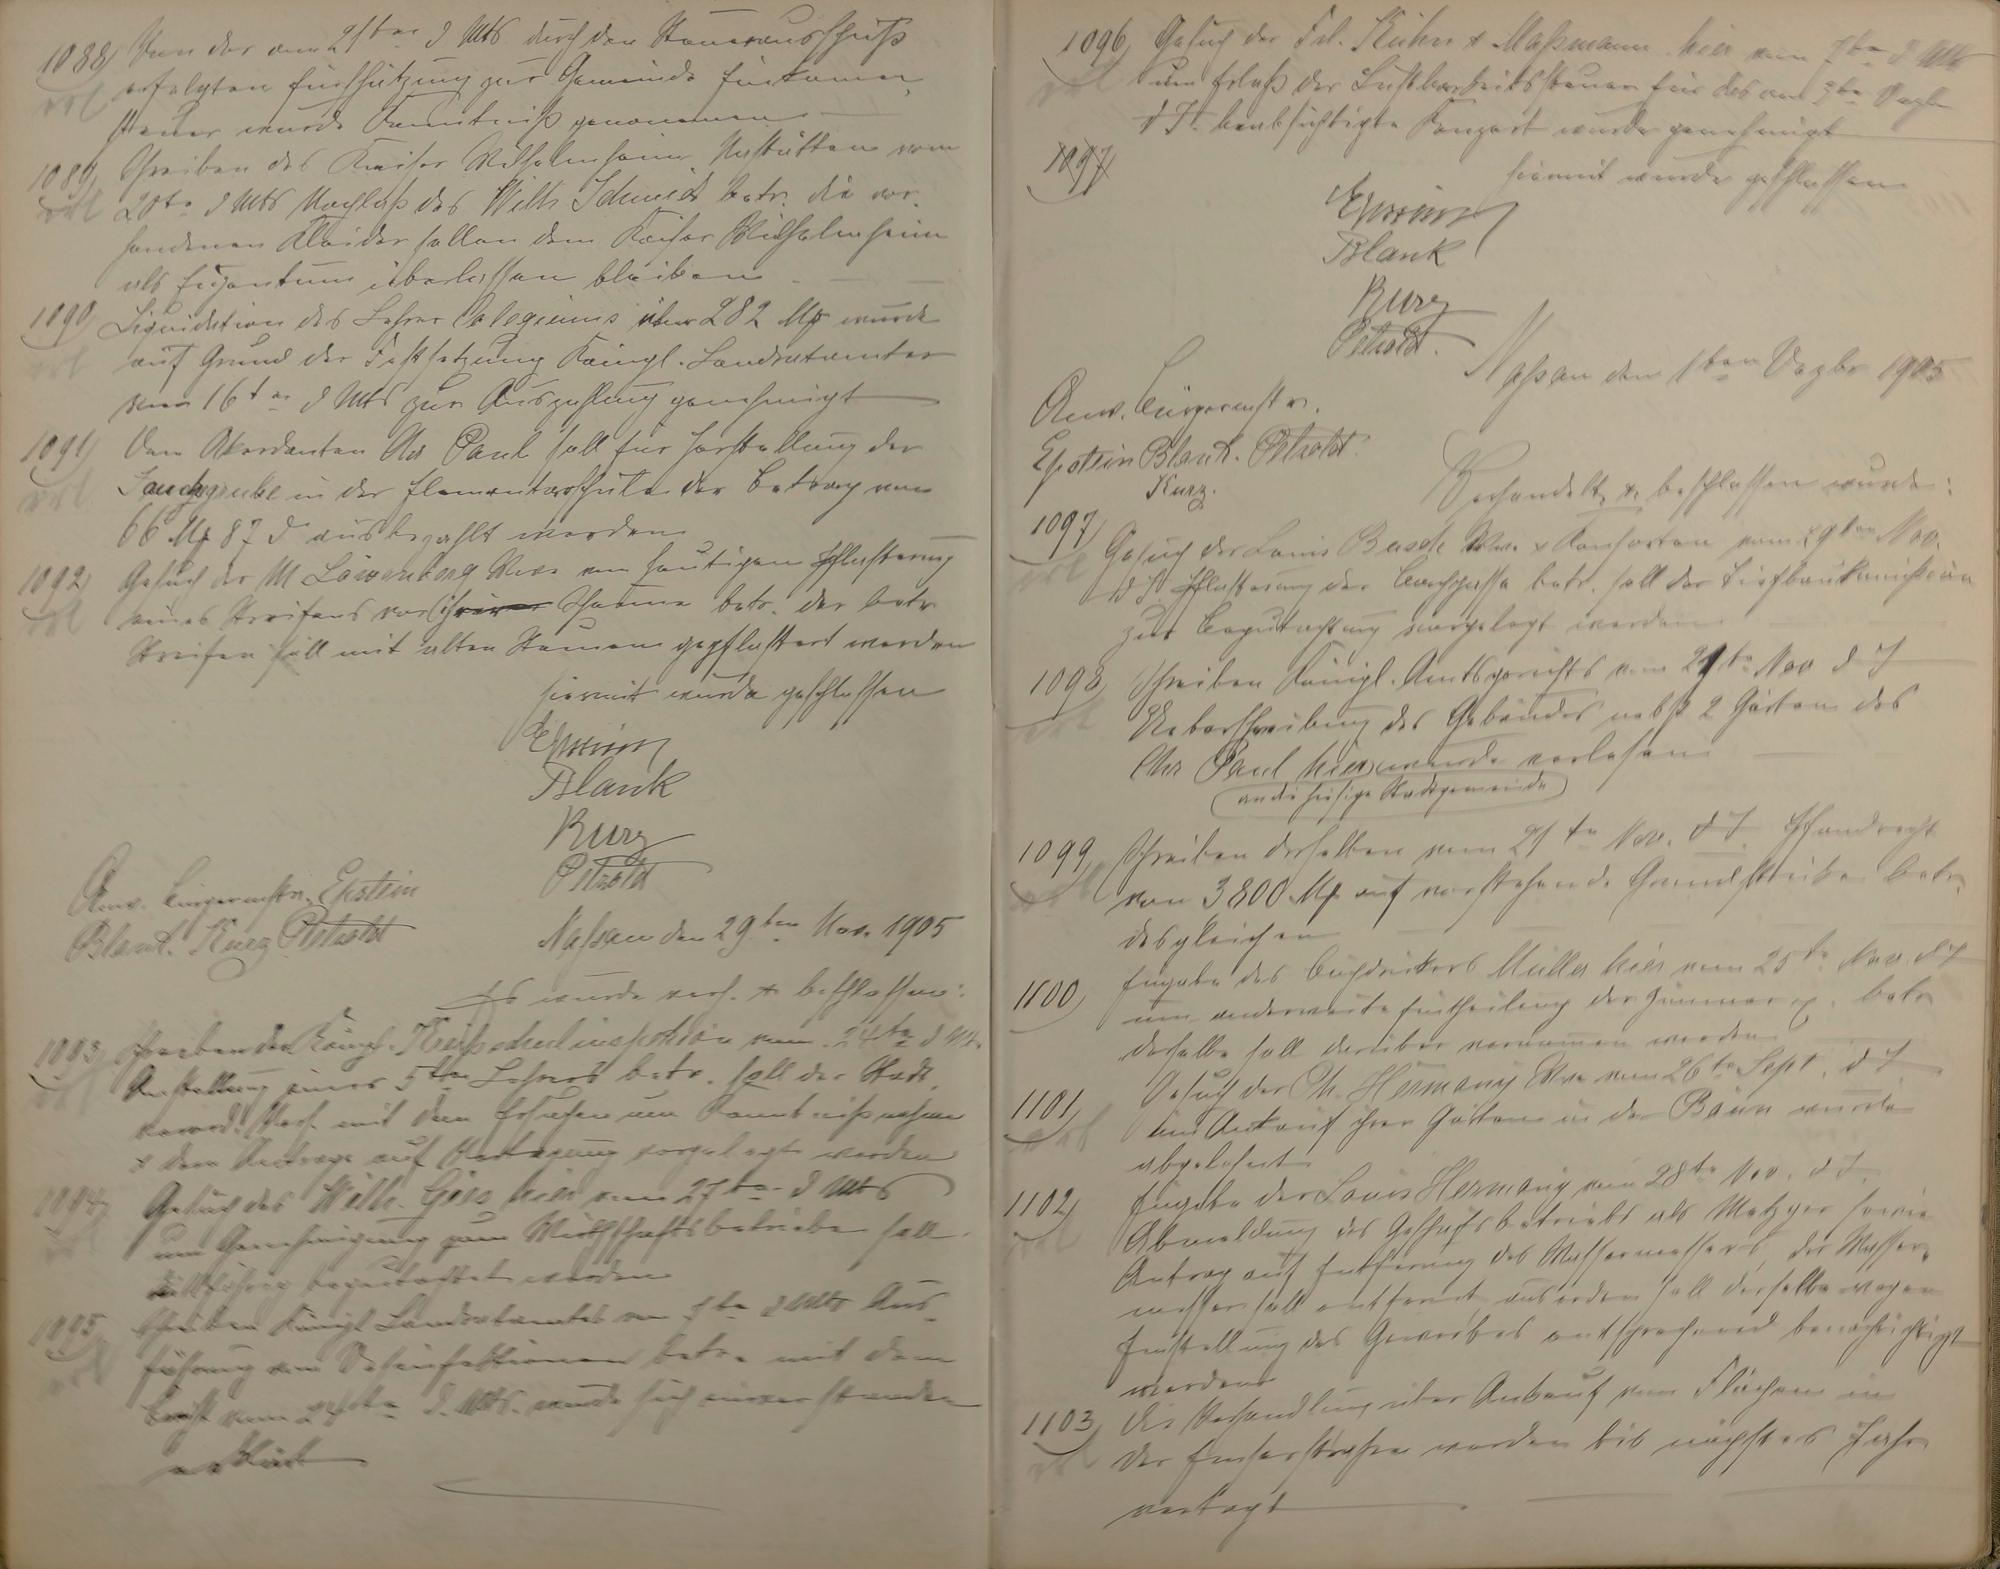 1088) Von der am 21ten d Mts. durch den Steuerausschuß
erl
erfolgten Einschätzung zur Gemeinde Einkommen
steuer wurde Kenntniß genommen
1089) Schreiben des Kaiser Wilhelmheim vom
erl
20ten d Mts Nachlaß des Wilh Schmidt betr. die vor-
handenen Kleider sollen dem Kaiser Wilhelmheim
als Eigentum überlassen bleiben
1090) Liquidation des Lehrer Colegiums über 282 Mk wurde
erl
auf Grund der Festsetzung Königl. Landratamtes
vom 16ten d Mts zur Auszahlung genehmigt
1091) Dem Akordanten Chr Paul soll für Herstellung der
erl
Jauchgrube in der Elementarschule der Betrag von
66 Mk 87 d ausbezahlt werden
1092) Gesuch der M Löwenberg Wwe vom heutigen Pflasterung
erl
eines Streifens vor ihrer Scheune betr. der betr
Streifen soll mit alten Steinen gepflastert werden
hiermit wurde geschlossen
Blank
Kurz
Petzold
Anw. Bürgermstr. Epstein
Blank. Kurz. Petzold
Nassau den 29ten Nov. 1905
Es wurde verh. & beschlossen:
1093) Schreiben der Königl. Kreisschulinspektion vom 24ten d Mts.
Anstellung eines 5ten Lehrers betr. soll der Stadt
verord. Vers. mit dem Ersuchen um Kenntnißnahme
& dem Antrage auf Vertagung vorgelegt werden
1094) Gesuch des Wilh. hier vom 27ten d Mts
um Genehmigung zum Wirthschaftsbetriebe soll
begutachtet werden
1095) Schreiben Königl Landratamtes vom 7ten d Mts Aus-
erl
führung von Desinfektionen betr. mit dem
vom 24ten d. Mts. wurde sich einverstanden
erklärt
1096) Gesuch der Frl. Kühn & Maßmann hier vom d Mts
erl
um Erlaß der Lustbarkeitssteuer für das am 3ten Dezb
d Js. beabsichtigte Konzert wurde genehmigt
1097)
hiermit wurde geschlossen
Blank
Kurz
Petzold.
Nassau den 1ten Dezbr 1905
Anw. Bürgermstr.
Epstein Blank. Petzold.
Kurz.
Verhandelt & beschlossen wurde:
1097) Gesuch der Louis Busch Wwe. & Konsorten vom 29ten Nov.
erl
d J. Pflasterung der Bachgasse betr. soll der Tiefbaukomission
zur Begutachtung vorgelegt werden
1098) Schreiben Königl. Amtsgerichts vom 21ten Nov d J
erl
Ueberschreibung des Gebäudes nebst 2 Gärten des
Chr Paul hier wurde verlesen
an die hiesige Stadtgemeinde
1099) Schreiben desselben vom 21ten Nov. d J. Pfandrecht
von 3800 Mk auf vorstehende Grundstücke betr.
desgleichen
1100) Eingabe des Buchdruckers Müller hier vom 25ten Nov. d J
um anderweite Eintheilung der Zimmer betr
derselbe soll darüber vernommen werden
1101) Gesuch der Ph. Hermany Wwe vom 26ten Sept. d J
erl
um Ankauf ihrer Gärten in der wurde
abgelehnt
1102) Eingabe des Louis Hermany vom 28ten Nov. d J.
erl
Abmeldung des Geschäftsbetriebs als Metzger sowie
Antrag auf Entfernung des Wassermessers, der Wasser-
messer soll entfernt, auserdem soll derselbe wegen
Einstellung des Gewerbes entsprechend benachrichtigt
werden
1103) Die Verhandlung über Ankauf von Flächen in
erl
der Emserstraße werden bis nächstes Jahr
vertagt